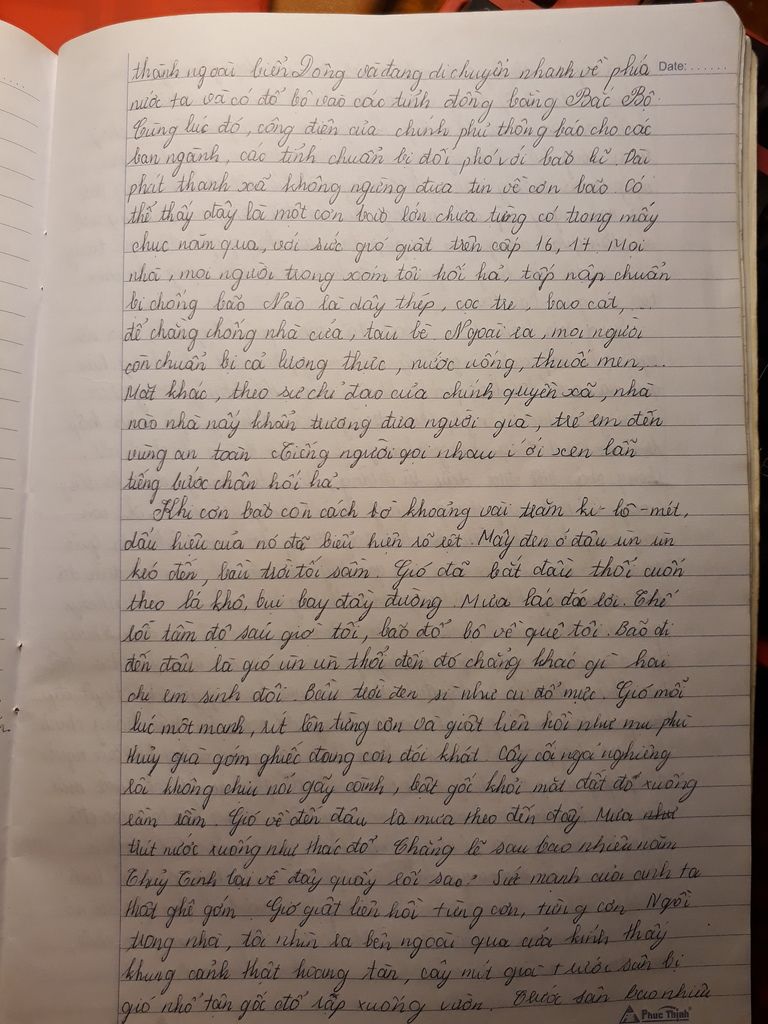 thành ngoài biển Đông và đang di chuyển nhanh về phía
Date: ......
nước ta và có đổ bộ vào các tỉnh đồng bằng Bắc Bộ.
Cùng lúc đó, công điện của chính phủ thông báo cho các
ban ngành, các tỉnh chuẩn bị đối phó với bão lũ. Đài
phát thanh xã không ngừng đưa tin về cơn bão. Có
thể thấy đây là một cơn bão lớn chưa từng có trong mấy
chục năm qua, với sức gió giật trên cấp 16, 17. Mọi
nhà, mọi người trong xóm tôi hối hả, tấp nập chuẩn
bị chống bão. Nào là dây thép, cọc tre, bao cát,...
để chằng chống nhà cửa, tàu bè. Ngoài ra, mọi người
còn chuẩn bị cả lương thực, nước uống, thuốc men,...
Mặt khác, theo sự chỉ đạo của chính quyền xã, nhà
nào nhà nấy khẩn trương đưa người già, trẻ em đến
vùng an toàn. Tiếng người gọi nhau í ới xen lẫn
tiếng bước chân hối hả.
Khi cơn bão còn cách bờ khoảng vài trăm ki-lô-mét,
dấu hiệu của nó đã biểu hiện rõ rệt. Mây đen ở đâu ùn ùn
kéo đến, bầu trời tối sầm. Gió đã bắt đầu thổi cuốn
theo lá khô, bụi bay đầy đường. Mưa lác đác rơi. Thế
rồi tầm độ sáu giờ tối, bão đổ bộ về quê tôi. Bão đi
đến đâu là gió ùn ùn thổi đến đó chẳng khác gì hai
chị em sinh đôi. Bầu trời đen sì như ai đổ mực. Gió mỗi
lúc một mạnh, rít lên từng cơn và giật liên hồi như mụ phù
thủy già gớm ghiếc đang cơn đói khát. Cây cối ngả nghiêng
rồi không chịu nổi gãy cành, bật gốc khỏi mặt đất đổ xuống
rầm rầm. Gió về đến đâu là mưa theo đến đấy. Mưa như
trút nước xuống như thác đổ. Chẳng lẽ sau bao nhiêu năm
Thủy Tinh lại về đây quấy rối sao? Sức mạnh của anh ta
thật ghê gớm. Gió giật liên hồi từng cơn, từng cơn. Ngồi
trong nhà, tôi nhìn ra bên ngoài qua cửa kính thấy
khung cảnh thật hoang tàn, cây mít già trước sân bị
gió nhổ tận gốc đổ rắp xuống vườn. Trước sân bao nhiêu
Phúc Thịnh